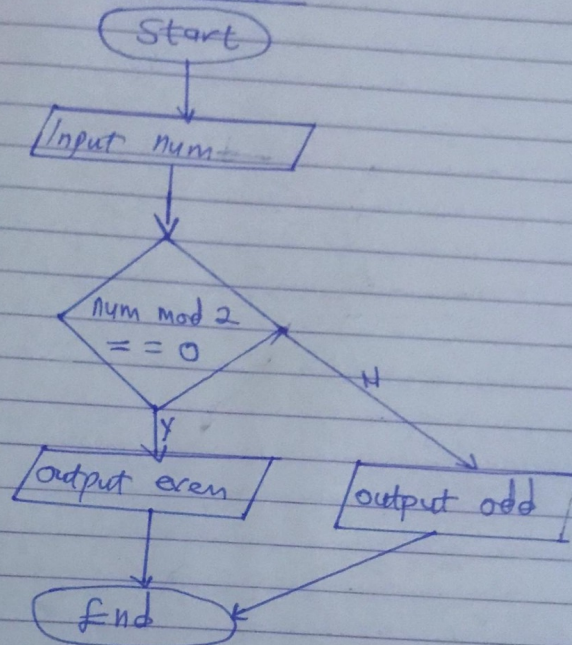 Start
Input num
num mod 2
== 0
N
Y
output even
output odd
End